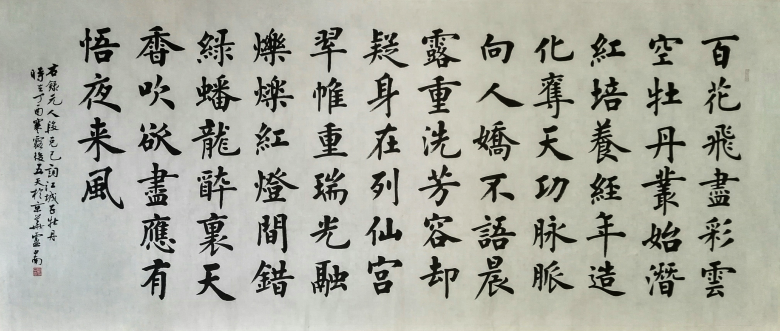 百花飛盡彩雲
空牡丹叢始潛
紅培養經年造
化奪天功脉脈
向人嬌不語晨
露重洗芳容却
疑身在列仙宮
翠帷重瑞光融
爍爍紅燈間錯
緑蟠龍醉裏天
香吹欲盡應有
悟夜来風
右錄元人段克己詞江城子牡丹
時在丁酉寒露後五天於京華雲南